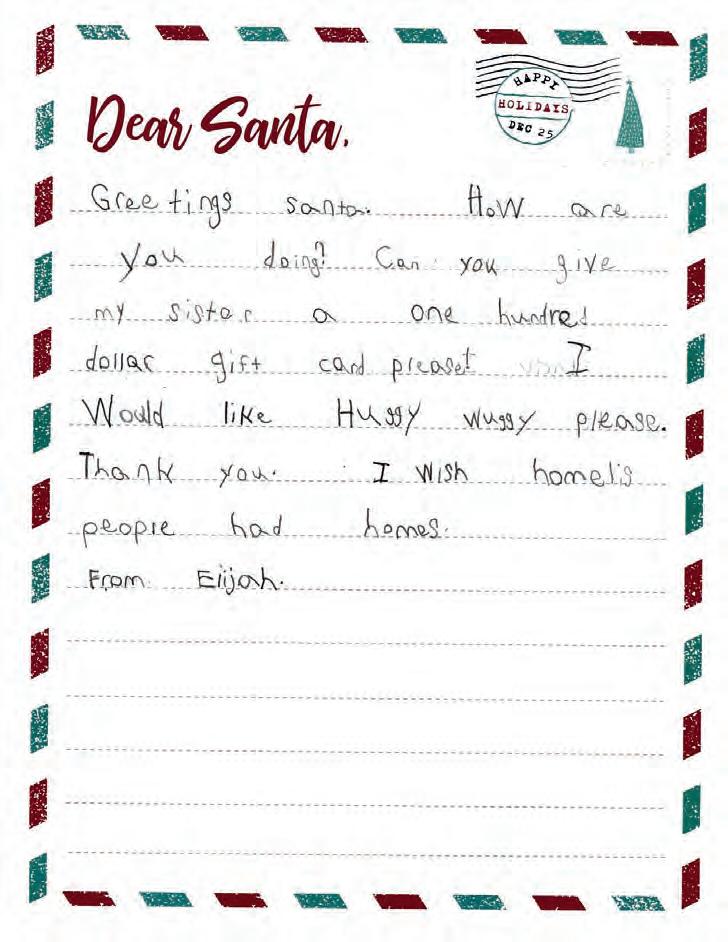 HAPPY
HOLIDAYS
DEC 25
Dear Santa,
Greetings santa. How are
you doing? Can you give
my sister a one hundred
dollar gift card please! I
Would like Huggy wuggy please.
Thank you. I wish homelis
people had homes.
From Elijah.